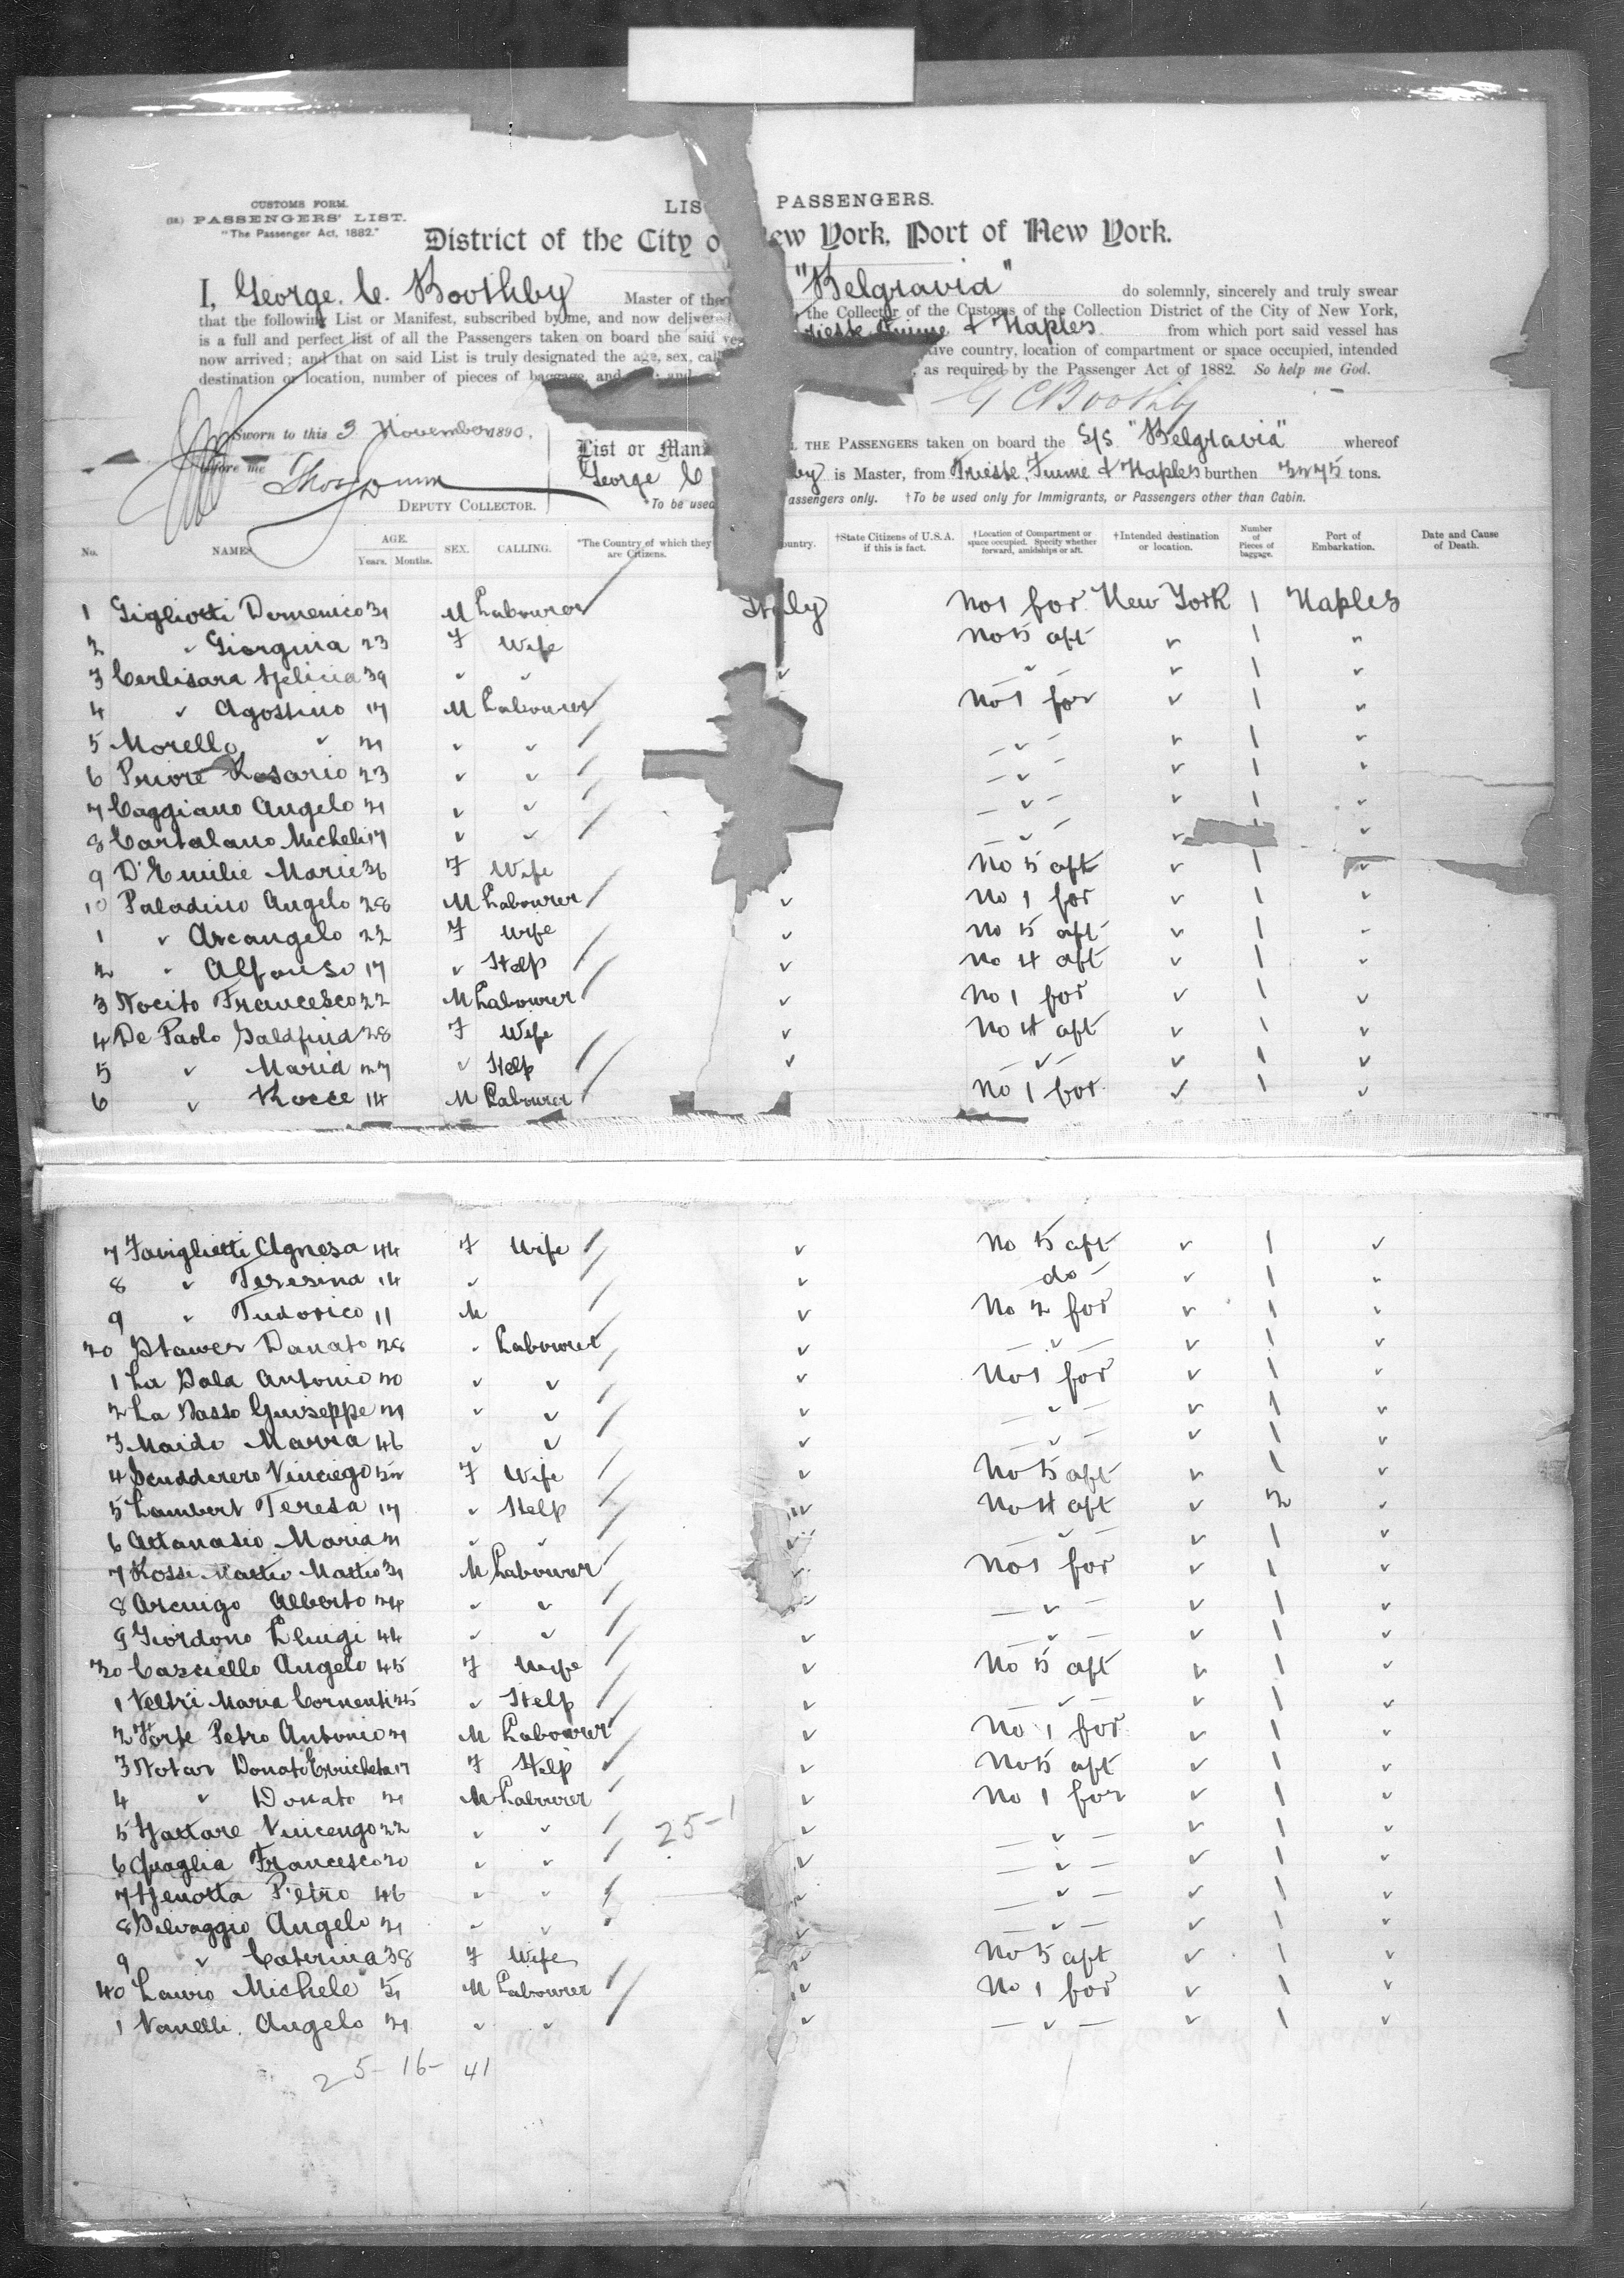 CUSTOMS FORM.
PASSENGERS' LIST.
"The Passenger Act, 1882."
LIS PASSENGERS.
District of the City o ew York, Port of New York.
I, George. C. Boothby Master of the "Belgravia" do solemnly, sincerely and truly swear
that the following List or Manifest, subscribed by me, and now delivered the Collector of the Customs of the Collection District of the City of New York,
is a full and perfect list of all the Passengers taken on board the said Fiume & Naples from which port said vessel has
now arrived; and that on said List is truly designated the age, sex, cal tive country, location of compartment or space occupied, intended
destination or location, number of pieces of baggage, and as required by the Passenger Act of 1882. So help me God.
G C Boothby
Sworn to this 3 November 1890,
before me
DEPUTY COLLECTOR.
List or Man THE PASSENGERS taken on board the S/S. "Belgravia" whereof
George C by is Master, from Trieste, Fiume & Naples burthen tons.
*To be used assengers only. †To be used only for Immigrants, or Passengers other than Cabin.
No. NAMES AGE. Years. Months. SEX. CALLING. *The Country of which they are Citizens. ountry. †State Citizens of U.S.A. if this is fact. †Location of Compartment or space occupied. Specify whether forward, amidships or aft. †Intended destination or location. Number of Pieces of baggage. Port of Embarkation. Date and Cause of Death.
1 Gigliotti Domenico M Labourer Italy No 1 for New York 1 Naples
2 " Giorguia 23 F Wife No 5 aft " 1 "
3 39 " " " " 1 "
4 " Agostino 17 M Labourer No 1 for " 1 "
5 Morello " " " " " 1 "
6 Priore Rosario 23 " " " " 1 "
7 Caggiano Angelo " " " " 1 "
8 Cartalano Micheli 17 " " " " "
9 D'Emilie Marie 36 F Wife No 5 aft " 1 "
10 Paladino Angelo 28 M Labourer " No 1 for " 1 "
1 " Arcangelo 22 F Wife " No 5 aft " 1 "
2 " Alfonso 17 " Help " No 4 aft " 1 "
3 Nocito Francesco 22 M Labourer " No 1 for " 1 "
4 De Paolo 28 F Wife " No 4 aft " 1 "
5 " Maria 27 " Help " " " 1 "
6 " Rocce 14 M Labourer No 1 for " 1 "
7 Faviglietti Agnesa 44 F Wife " No 5 aft " 1 "
8 " Teresina 14 " " do " 1 "
9 " Tudorico 11 M " No 2 for " 1 "
20 Donato 28 " Labourer " " " 1 "
1 La Sala Antonio 20 " " " No 1 for " 1 "
2 La Sasso Guiseppe 21 " " " " " 1 "
3 Maido Marra 46 " " " " " 1 "
4 F Wife " No 5 aft " 1 "
5 Lambert Teresa 17 " Help " No 4 aft " 2 "
6 Attanasio Maria 21 " " " " " 1 "
7 Rossi Matteo Matteo 31 M Labourer " No 1 for " 1 "
8 Alberto 24 " " " " " 1 "
9 Giordono Lluigi 44 " " " " " 1 "
30 Casciello Angelo 45 F Wife " No 5 aft " 1 "
1 Veltri Maria 25 " Help " " " 1 "
2 Forte Petro Antonio 21 M Labourer " No 1 for " 1 "
3 Notar Donato 17 F Help " No 5 aft " 1 "
4 " Donato 21 M Labourer " No 1 for " 1 "
5 Vincengo 22 " " 25-1 " " " 1 "
6 Quaglia Francesco 20 " " " " " 1 "
7 Pietro 46 " " " " " 1 "
8 Selvaggio Angelo 21 " " " " " 1 "
9 " Caterina 38 F Wife " No 5 aft " 1 "
40 Lauro Michele 51 M Labourer " No 1 for " 1 "
1 Vanelli. Angelo 21 " " " " " 1 "
25-16- 41